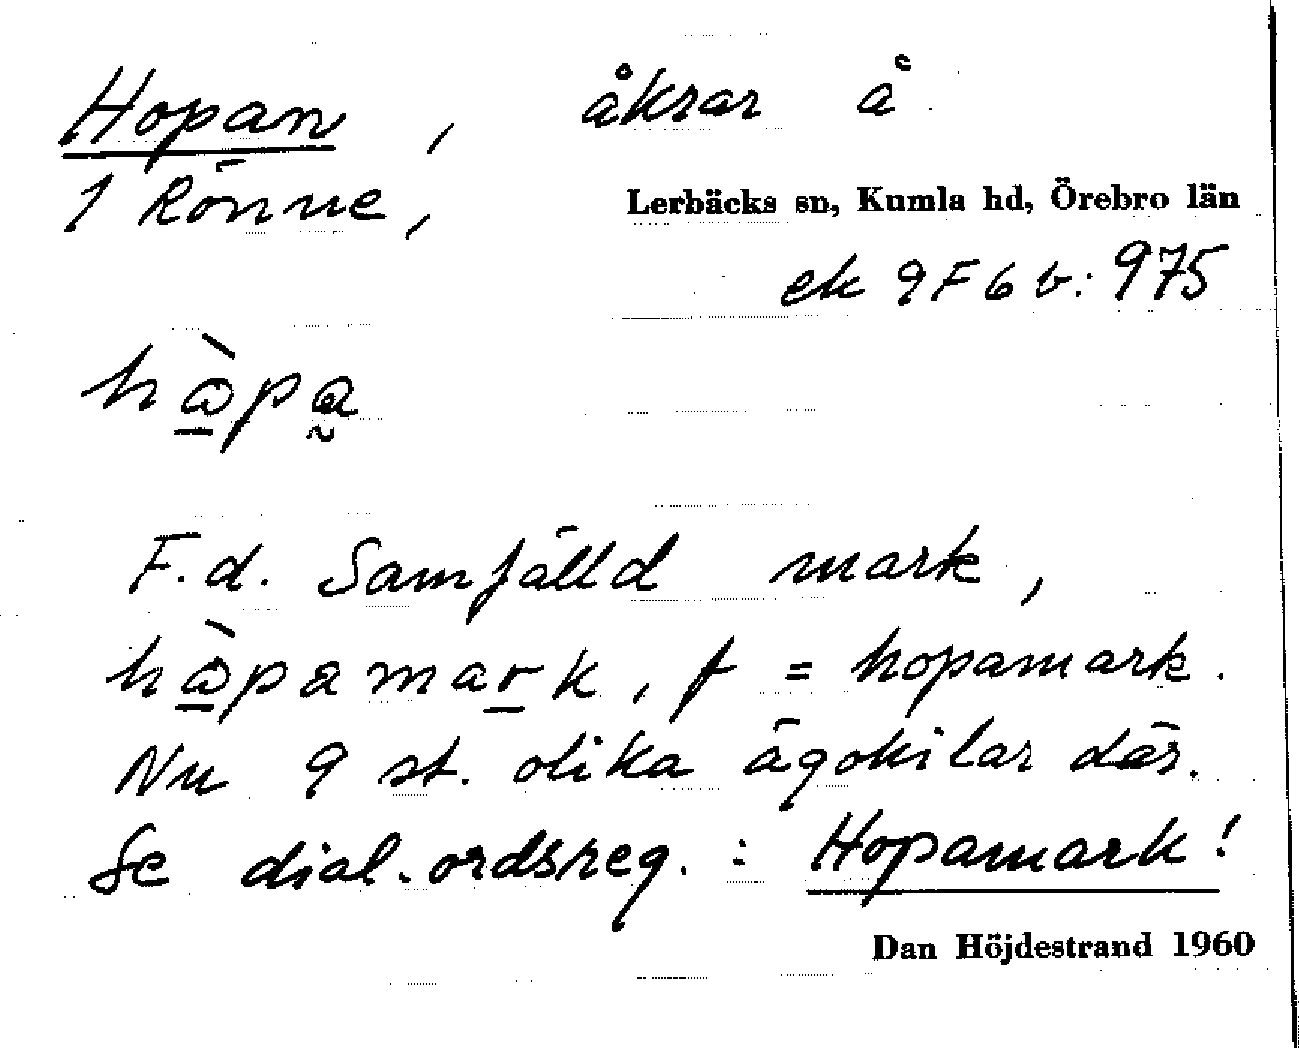 Hopan, åkrar å
1 Rönne, Lerbäcks sn, Kumla hd, Örebro län
ek 9F6b: 975
hàpa
F.d. Samfälld mark,
hàpamark, f = hopamark.
Nu 9 st. olika ägokilar där.
Se dial.ordsreg.: Hopamark!
Dan Höjdestrand 1960